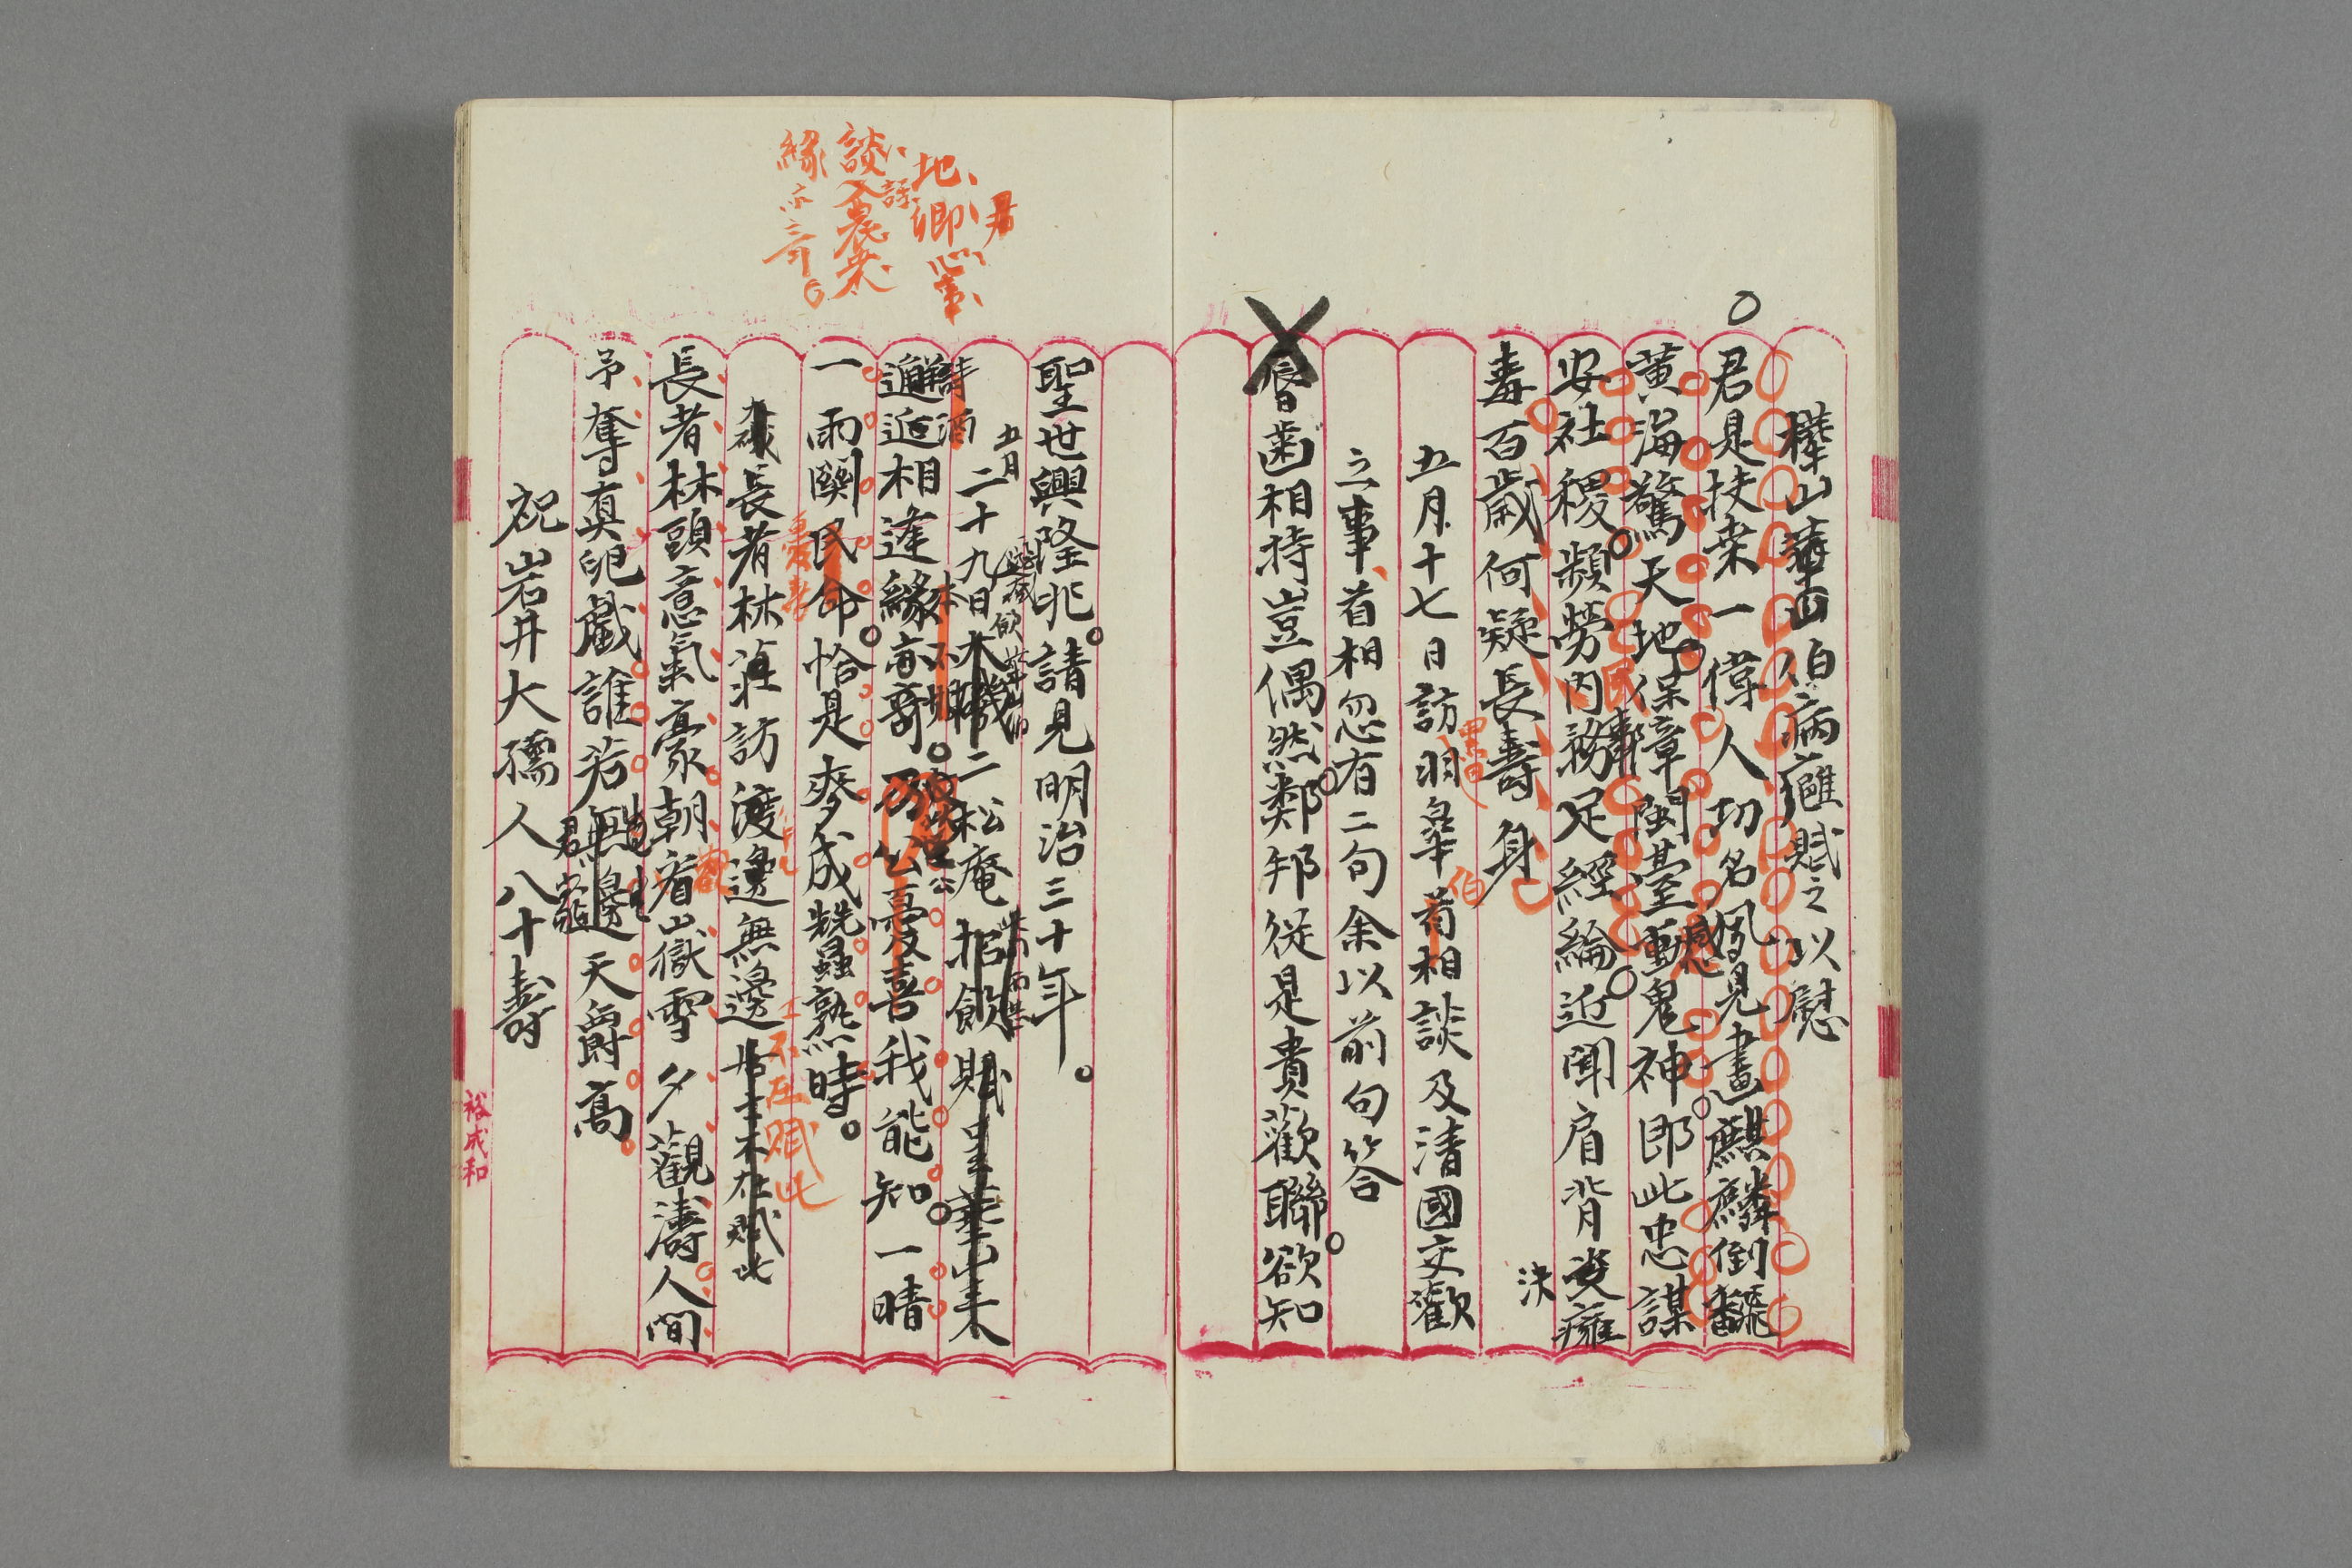 樺山華山伯病癰賦之以慰
君是扶桒一偉人功名夙見畫麒麟倒飜
黃海驚天地保章閩臺動鬼神即此忠謀
安社稷頻勞内務足經綸近聞肩背癰
決
毒百歲何疑長壽身
五月十七日訪羽皐首相談及清國交歡
伯
之事首相忽有二句余以前句答
唇齒相持豈偶然鄰邦從是貴歡聯欲知
聖世興隆兆請見明治三十年
五月
二十九日二松庵招飲賦
詩酒
邂逅相逢緣亦奇公憂喜我能知一晴
一雨關民命恰是麥成蠶熟時
大磯長者林莊訪渡邊無邊居士不在賦此
士不在賦此
長者林頭意氣豪朝看山嶽雪夕觀濤人間
予奪真兒戲誰若無邊天爵高
祝岩井大孺人八十壽
地卿心事
君
談入農桒
話
緣亦奇
裕成和